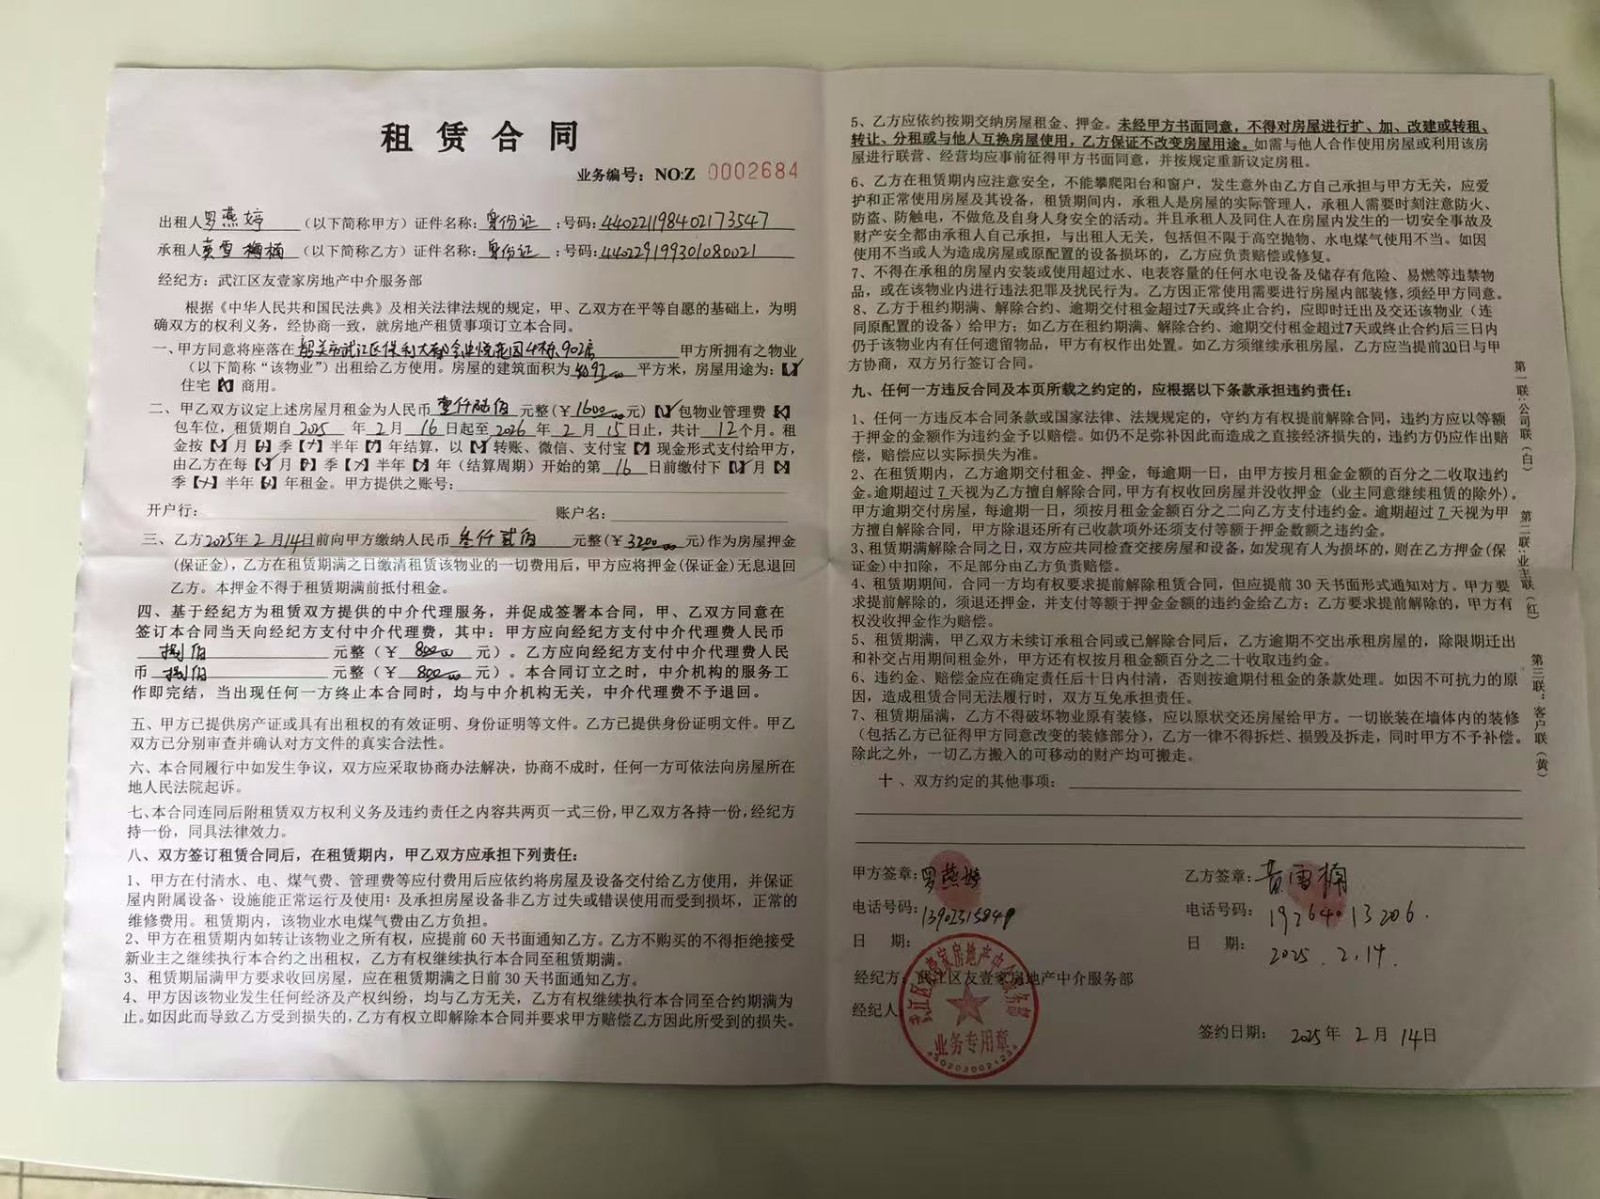 租赁合同
业务编号：NO:Z 0002684
出租人罗燕婷（以下简称甲方）证件名称：身份证：号码：440221198402173547
承租人黄雪楠（以下简称乙方）证件名称：身份证：号码：440229199301080021
经纪方：武江区友壹家房地产中介服务部
根据《中华人民共和国民法典》及相关法律法规的规定，甲、乙双方在平等自愿的基础上，为明
确双方的权利义务，经协商一致，就房地产租赁事项订立本合同。
一、甲方同意将座落在韶关市武江区保利大都会悦花园4栋902房甲方所拥有之物业
（以下简称“该物业”）出租给乙方使用。房屋的建筑面积为 平方米，房屋用途为：【✓】
住宅【×】商用。
二、甲乙双方议定上述房屋月租金为人民币壹仟陆佰元整（￥1600.00元）【✓】包物业管理费【×】
包车位，租赁期自2025年2月16日起至2026年2月15日止，共计12个月。租
金按【✓】月【×】季【×】半年【×】年结算，以【✓】转账、微信、支付宝【×】现金形式支付给甲方，
由乙方在每【✓】月【×】季【×】半年【×】年（结算周期）开始的第16日前缴付下【✓】月【×】
季【×】半年【×】年租金。甲方提供之账号：
开户行： 账户名：
三、乙方2025年2月14日前向甲方缴纳人民币叁仟贰佰元整（￥3200.00元）作为房屋押金
（保证金），乙方在租赁期满之日缴清租赁该物业的一切费用后，甲方应将押金（保证金）无息退回
乙方。本押金不得于租赁期满前抵付租金。
四、基于经纪方为租赁双方提供的中介代理服务，并促成签署本合同，甲、乙双方同意在
签订本合同当天向经纪方支付中介代理费，其中：甲方应向经纪方支付中介代理费人民币
捌佰元整（￥800.00元）。乙方应向经纪方支付中介代理费人民
币捌佰元整（￥800.00元）。本合同订立之时，中介机构的服务工
作即完结，当出现任何一方终止本合同时，均与中介机构无关，中介代理费不予退回。
五、甲方已提供房产证或具有出租权的有效证明、身份证明等文件。乙方已提供身份证明文件。甲乙
双方已分别审查并确认对方文件的真实合法性。
六、本合同履行中如发生争议，双方应采取协商办法解决，协商不成时，任何一方可依法向房屋所在
地人民法院起诉。
七、本合同连同后附租赁双方权利义务及违约责任之内容共两页一式三份，甲乙双方各持一份，经纪方
持一份，同具法律效力。
八、双方签订租赁合同后，在租赁期内，甲乙双方应承担下列责任：
1、甲方在付清水、电、煤气费、管理费等应付费用后应依约将房屋及设备交付给乙方使用，并保证
屋内附属设备、设施能正常运行及使用；及承担房屋设备非乙方过失或错误使用而受到损坏，正常的
维修费用。租赁期内，该物业水电煤气费由乙方负担。
2、甲方在租赁期内如转让该物业之所有权，应提前60天书面通知乙方。乙方不购买的不得拒绝接受
新业主之继续执行本合约之出租权，乙方有权继续执行本合同至租赁期满。
3、租赁期届满甲方要求收回房屋，应在租赁期满之日前30天书面通知乙方。
4、甲方因该物业发生任何经济及产权纠纷，均与乙方无关，乙方有权继续执行本合同至合约期满为
止。如因此而导致乙方受到损失的，乙方有权立即解除本合同并要求甲方赔偿乙方因此所受到的损失。
5、乙方应依约按期交纳房屋租金、押金。未经甲方书面同意，不得对房屋进行扩、加、改建或转租、
转让、分租或与他人互换房屋使用，乙方保证不改变房屋用途。如需与他人合作使用房屋或利用该房
屋进行联营、经营均应事前征得甲方书面同意，并按规定重新议定房租。
6、乙方在租赁期内应注意安全，不能攀爬阳台和窗户，发生意外由乙方自己承担与甲方无关，应爱
护和正常使用房屋及其设备，租赁期间内，承租人是房屋的实际管理人，承租人需要时刻注意防火、
防盗、防触电，不做危及自身人身安全的活动。并且承租人及同住人在房屋内发生的一切安全事故及
财产安全都由承租人自己承担，与出租人无关，包括但不限于高空抛物、水电煤气使用不当。如因
使用不当或人为造成房屋或原配置的设备损坏的，乙方应负责赔偿或修复。
7、不得在承租的房屋内安装或使用超过水、电表容量的任何水电设备及储存有危险、易燃等违禁物
品，或在该物业内进行违法犯罪及扰民行为。乙方因正常使用需要进行房屋内部装修，须经甲方同意。
8、乙方于租约期满、解除合约、逾期交付租金超过7天或终止合约，应即时迁出及交还该物业（连
同原配置的设备）给甲方；如乙方在租约期满、解除合约、逾期交付租金超过7天或终止合约后三日内
仍于该物业内有任何遗留物品，甲方有权作出处置。如乙方须继续承租房屋，乙方应当提前30日与甲
方协商，双方另行签订合同。
九、任何一方违反合同及本页所载之约定的，应根据以下条款承担违约责任：
1、任何一方违反本合同条款或国家法律、法规规定的，守约方有权提前解除合同，违约方应以等额
于押金的金额作为违约金予以赔偿。如仍不足弥补因此而造成之直接经济损失的，违约方仍应作出赔
偿，赔偿应以实际损失为准。
2、在租赁期内，乙方逾期交付租金、押金，每逾期一日，由甲方按月租金金额的百分之二收取违约
金。逾期超过7天视为乙方擅自解除合同，甲方有权收回房屋并没收押金（业主同意继续租赁的除外）。
甲方逾期交付房屋，每逾期一日，须按月租金金额百分之二向乙方支付违约金。逾期超过7天视为甲
方擅自解除合同，甲方除退还所有已收款项外还须支付等额于押金数额之违约金。
3、租赁期满解除合同之日，双方应共同检查交接房屋和设备，如发现有人为损坏的，则在乙方押金（保
证金）中扣除，不足部分由乙方负责赔偿。
4、租赁期期间，合同一方均有权要求提前解除租赁合同，但应提前30天书面形式通知对方。甲方要
求提前解除的，须退还押金，并支付等额于押金金额的违约金给乙方；乙方要求提前解除的，甲方有
权没收押金作为赔偿。
5、租赁期满，甲乙双方未续订承租合同或已解除合同后，乙方逾期不交出承租房屋的，除限期迁出
和补交占用期间租金外，甲方还有权按月租金额百分之二十收取违约金。
6、违约金、赔偿金应在确定责任后十日内付清，否则按逾期付租金的条款处理。如因不可抗力的原
因，造成租赁合同无法履行时，双方互免承担责任。
7、租赁期届满，乙方不得破坏物业原有装修，应以原状交还房屋给甲方。一切嵌装在墙体内的装修
（包括乙方已征得甲方同意改变的装修部分），乙方一律不得拆烂、损毁及拆走，同时甲方不予补偿。
除此之外，一切乙方搬入的可移动的财产均可搬走。
十、双方约定的其他事项：
甲方签章：罗燕婷 乙方签章：黄雪楠
电话号码：13902315849 电话号码：19264013206.
日 期： 日 期：2025.2.14.
经纪方：武江区友壹家房地产中介服务部
经纪人
签约日期：2025年2月14日
武江区友壹家房地产中介服务部
业务专用章
第一联：公司联（白）
第二联：业主联（红）
第三联：客户联（黄）